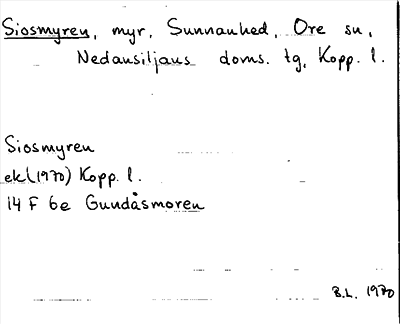 Siosmyren, myr, Sunnanhed, Ore sn,
Nedansiljans doms. tg, Kopp. l.
Siosmyren
ek(1970) Kopp. l.
14 F 6e Gundåsmoren
B.L. 1970